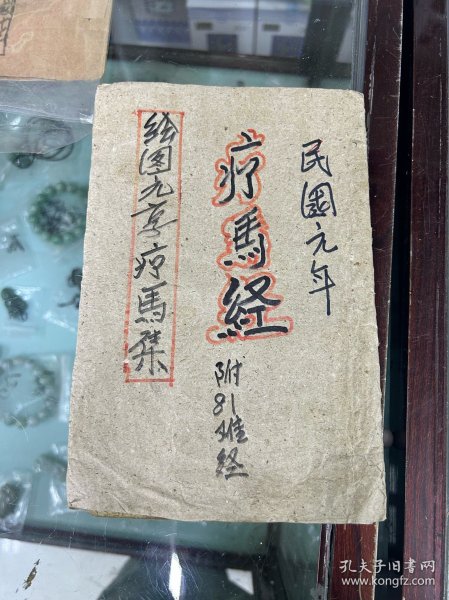 民國元年
疗馬经
附81难经
绘图元亨疗馬集
孔夫子旧书网
www.kongfz.com